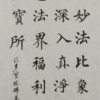 妙法比象
深入真淨
法界福利
寶所